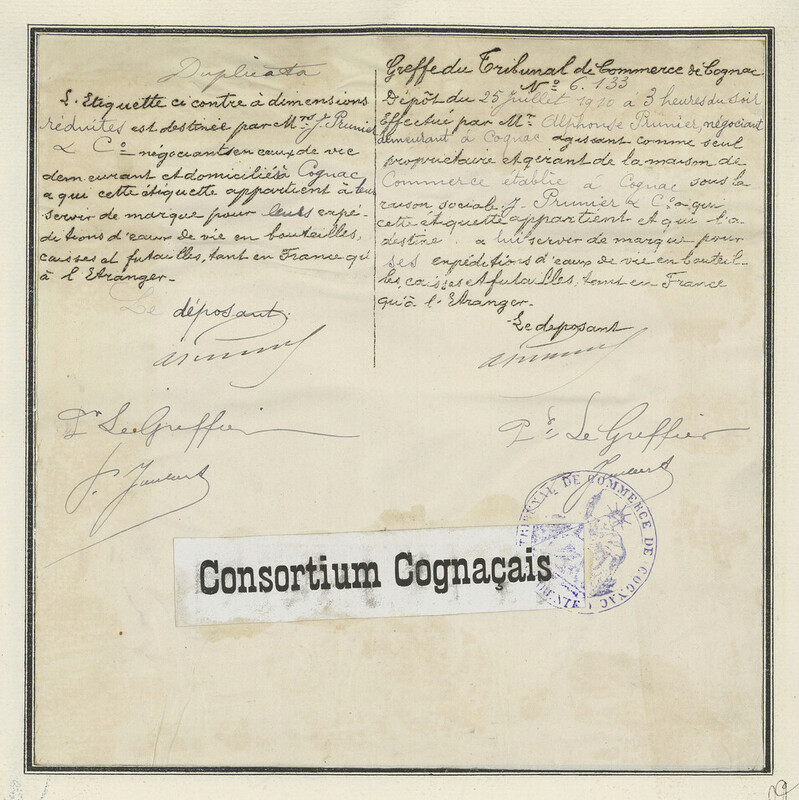 Duplicata
L'Etiquette ci contre à dimensions
réduites est destinée par Mrs J. Prunier
& Cº négociants en eaux de vie
demeurant et domiciliés à Cognac
a qui cette étiquette appartient à leur
servir de marque pour leurs expé-
ditions d'eaux de vie en bouteilles,
caisses et futailles, tant en France qu'
à l'Etranger.
Le déposant
Pr Le Greffier
Greffe du Tribunal de Commerce de Cognac
Nº 6.133
Dépôt du 25 Juillet 1910 à 3 heures du soir
Effectué par Mr Alphonse Prunier, négociant
demeurant à Cognac agissant comme seul
propriétaire et gérant de la maison de
Commerce établie à Cognac sous la
raison sociale J. Prunier & Cº a qui
cette étiquette appartient et qui l'a
destine a lui servir de marque pour
ses expéditions d'eaux de vie en bouteil-
les, caisses et futailles, tant en France
qu'à l'Etranger.
Le deposant
Pr Le Greffier
TRIBUNAL DE COMMERCE DE COGNAC
Consortium Cognaçais